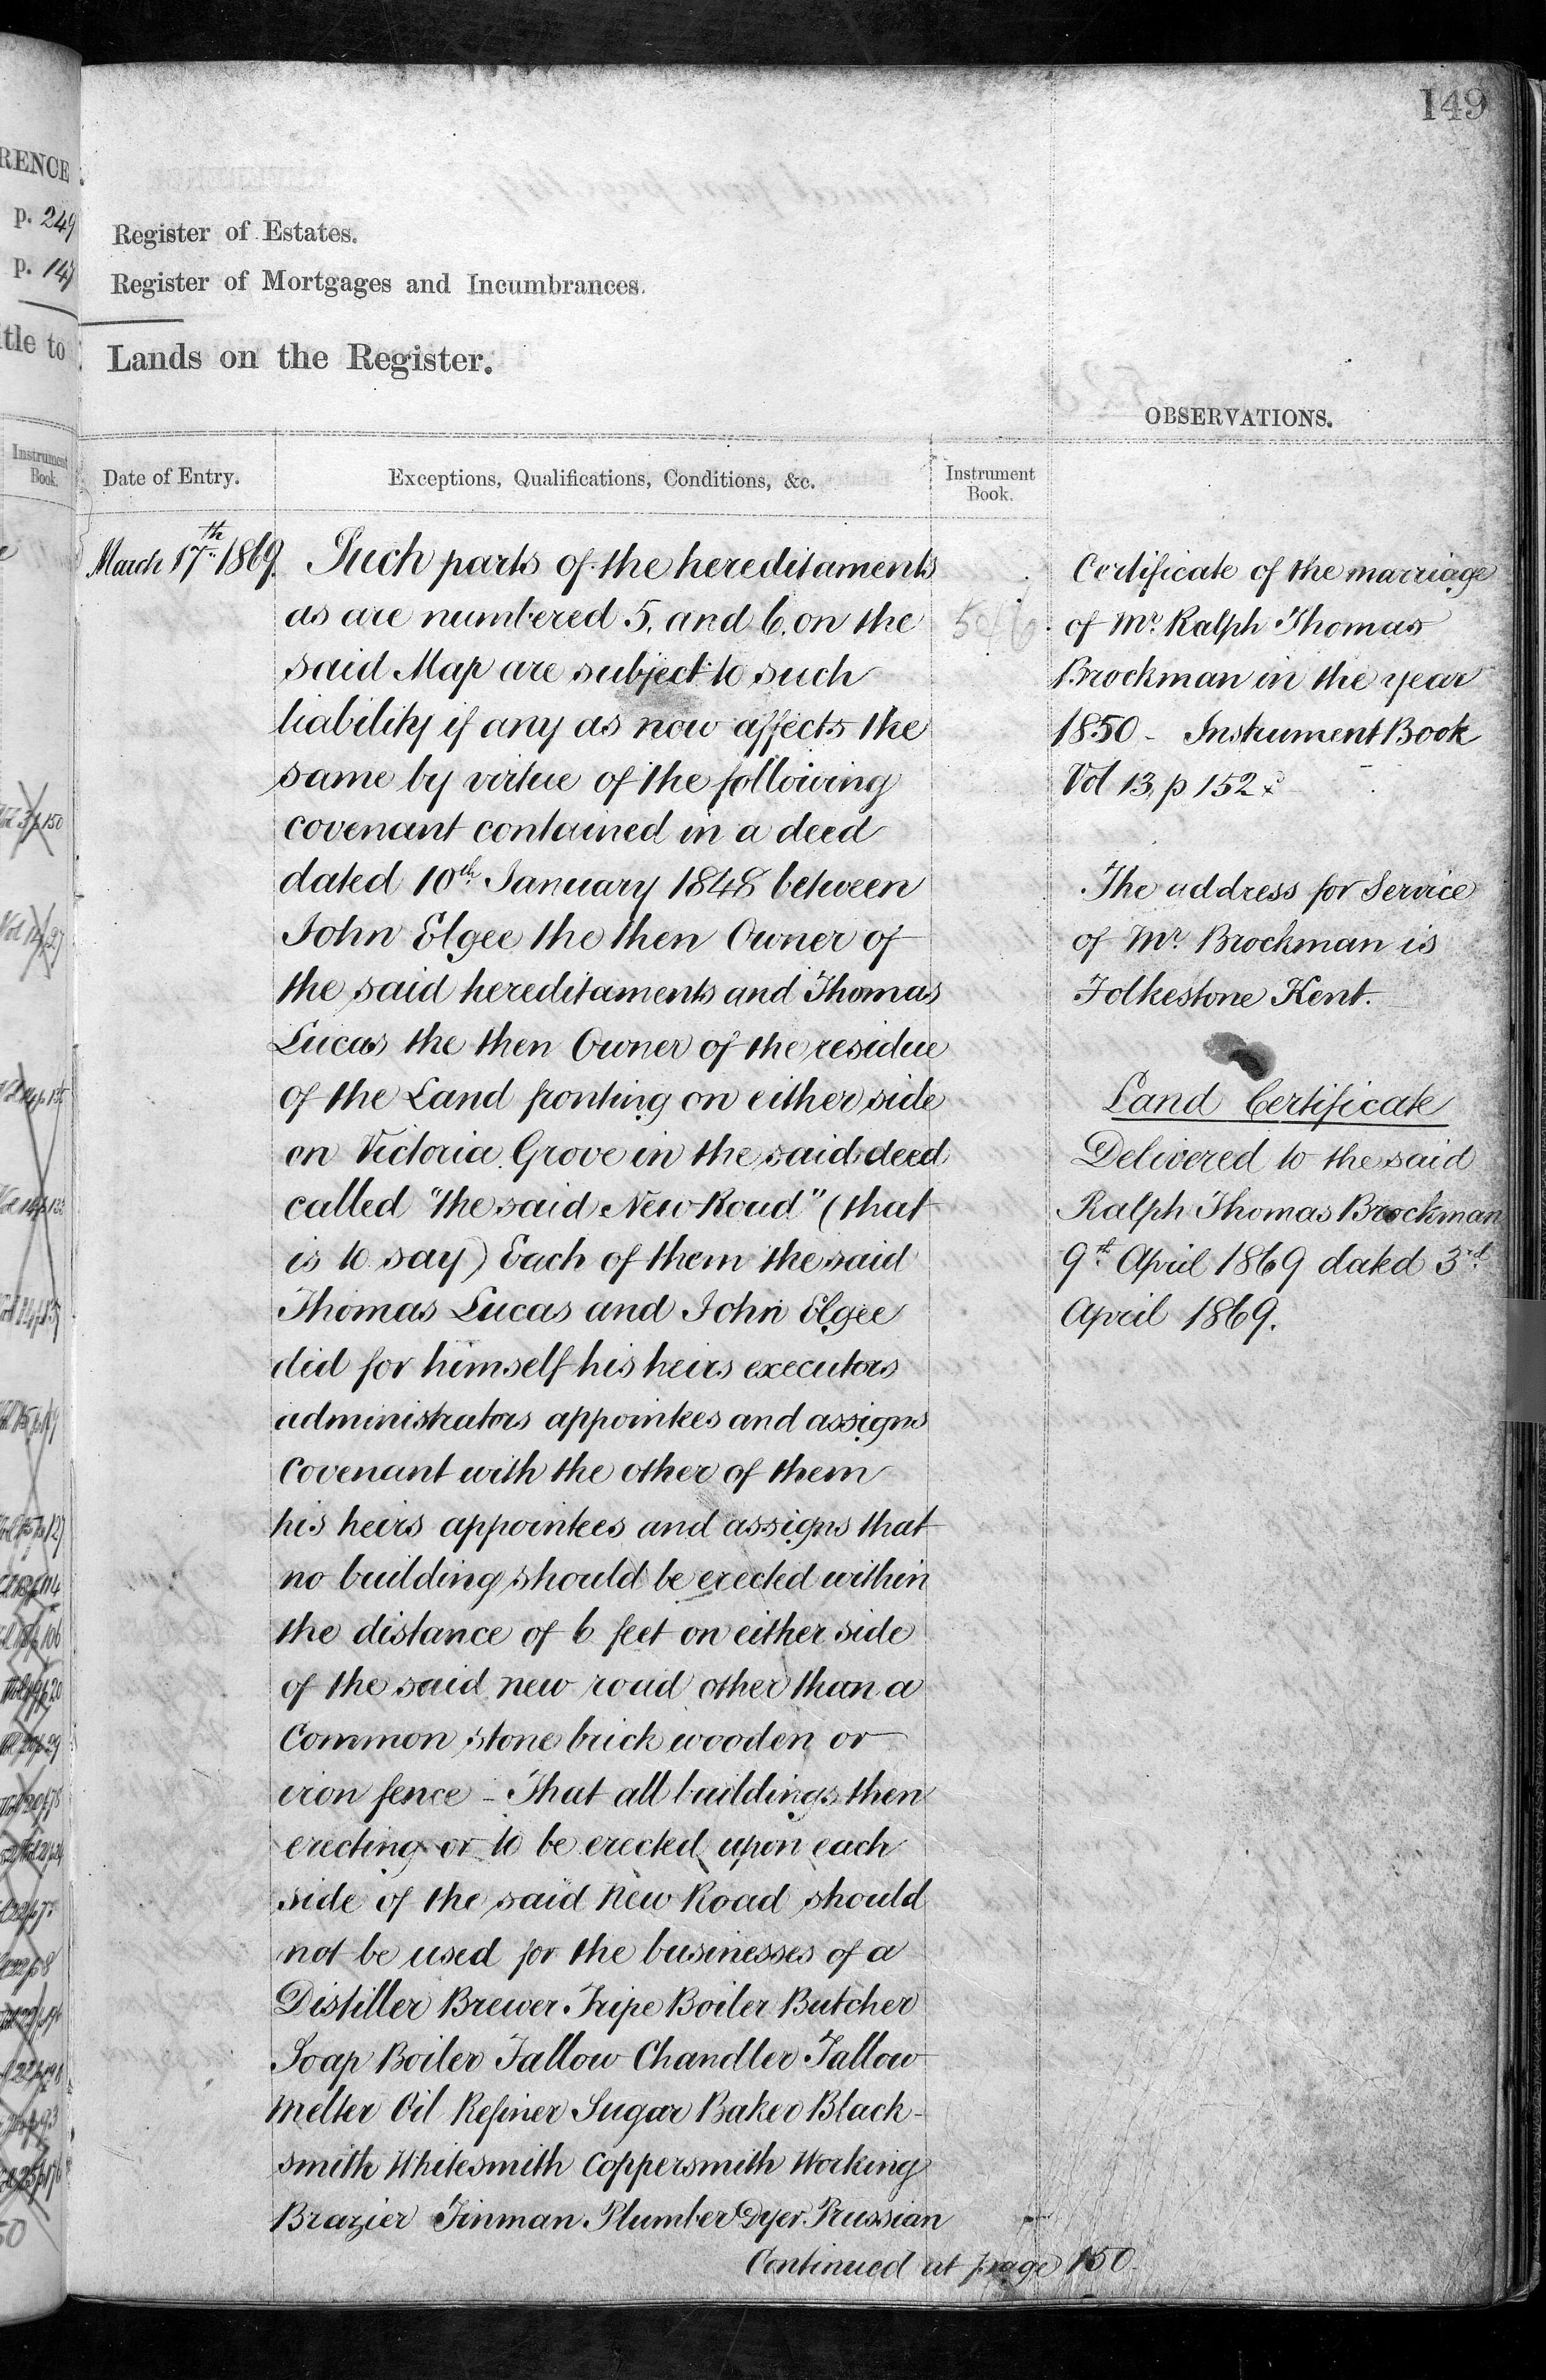 149
RENCE
p. 249
p. 147
itle to
Instrument
Book.
Register of Estates.
Register of Mortgages and Incumbrances.
Lands on the Register.
OBSERVATIONS.
Date of Entry.
Exceptions, Qualifications, Conditions, &c.
Instrument
Book.
March 17th 1869.
Such parts of the hereditaments
as are numbered 5, and 6, on the
said Map are subject to such
liability if any as now affects the
same by virtue of the following
covenant contained in a deed
dated 10th January 1848 between
John Elgee the then Owner of
the said hereditaments and Thomas
Lucas the then Owner of the residue
of the Land fronting on either side
on Victoria Grove in the said deed
called "the said New Road" (that
is to say) Each of them the said
Thomas Lucas and John Elgee
did for himself his heirs executors
administrators appointees and assigns
Covenant with the other of them
his heirs appointees and assigns that
no building should be erected within
the distance of 6 feet on either side
of the said new road other than a
Common stone brick wooden or
iron fence - That all buildings then
erecting or to be erected upon each
side of the said New Road should
not be used for the businesses of a
Distiller Brewer Tripe Boiler Butcher
Soap Boiler Tallow Chandler Tallow
Melter Oil Refiner Sugar Baker Black-
smith Whitesmith Coppersmith Working
Brazier Tinman Plumber Dyer Prussian
Continued at page 150.
Certificate of the marriage
of Mr. Ralph Thomas
Brockman in the year
1850 - Instrument Book
Vol 13, p 152
The address for Service
of Mr. Brockman is
Folkestone Kent.
Land Certificate
Delivered to the said
Ralph Thomas Brockman
9th April 1869 dated 3rd
April 1869.